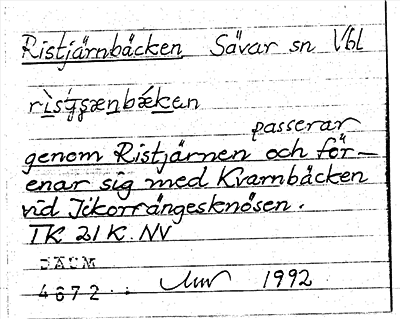 Ristjärnbäcken Sävar sn Vbl
rìstjşænbǽken
passerar
genom Ristjärnen och för-
enar sig med Kvarnbäcken
vid Ickorrängesknösen.
TK 21 K. NV
DAUM
4672 1992